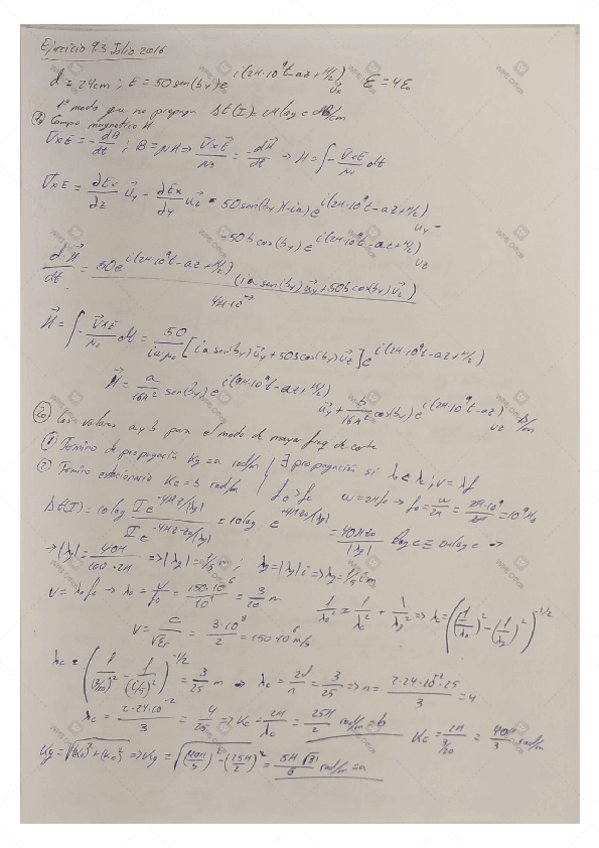 Ejercicio 9.3 Julio 2016
d = 24cm ; E = 50 sen(by) e^{i(2π·10⁹t-az+π/2)} u⃗x ε = 4ε₀
1º modo que no propaga Δt(I) = 2π log e dB/cm
Campo magnetico H
∇xE = -dB/dt ; B = μH ⇒ ∇xE/μ₀ = -dH/dt → H = ∫ -∇xE/μ₀ dt
∇xE = ∂Ex/∂z u⃗y - ∂Ex/∂y u⃗z = 50 sen(by)(-ia) e^{i(2π·10⁹t-az+π/2)} uy -
-50b cos(by) e^{i(2π·10⁹t-az+π/2)} uz
dH⃗/dt = 50e^{i(2π·10⁹t-az+π/2)} (ia sen(by) u⃗y + 50b cos(by) u⃗z) / 4π·10⁻⁷
H⃗ = ∫ -∇xE/μ₀ dt = 50/iωμ₀ [ia sen(by) u⃗y + 50b cos(by) u⃗z] e^{i(2π·10⁹t-az+π/2)}
H⃗ = a/16π² sen(by) e^{i(2π·10⁹t-az+π/2)} u⃗y + b/16π² cos(by) e^{i(2π·10⁹t-az)} uz A/m
los valores a y b para el modo de mayor freq de corte
① Termino de propagación Kg = a rad/m ∃ propagación si λ₀ < λc ; v = λf
② Termino estacionario Kc = b rad/m f₀ > fc ω = 2πf₀ → f₀ = ω/2π = 2π·10⁹/2π = 10⁹ Hz
Δt(I) = 10 log = 10 log e = 40π log e = 2π log e ⇒
⇒ |λg| = 40π/100·2π ⇒ |λg| = 1/5 m ; λg = |λg| i ⇒ λg = i/5 m
v = λ₀f₀ ⇒ λ₀ = v/f₀ = 150·10⁶/10⁹ = 3/20 m 1/λ₀² = 1/λc² + 1/λg² ⇒ λc = ((1/λ₀)² - (1/λg)²)^{-1/2}
v = c/√εr = 3·10⁸/2 = 150·10⁶ m/s
λc = (1/(3/20)² - 1/(i/5)²)^{-1/2} = 3/25 m ⇒ λc = 2d/n = 3/25 ⇒ n = 2·24·10⁻²·25/3 = 4
λc = 2·24·10⁻²/3 = 4/25 ⇒ Kc = 2π/λc = 25π/2 rad/m = b K₀ = 2π/(3/20) = 40π/3 rad/m